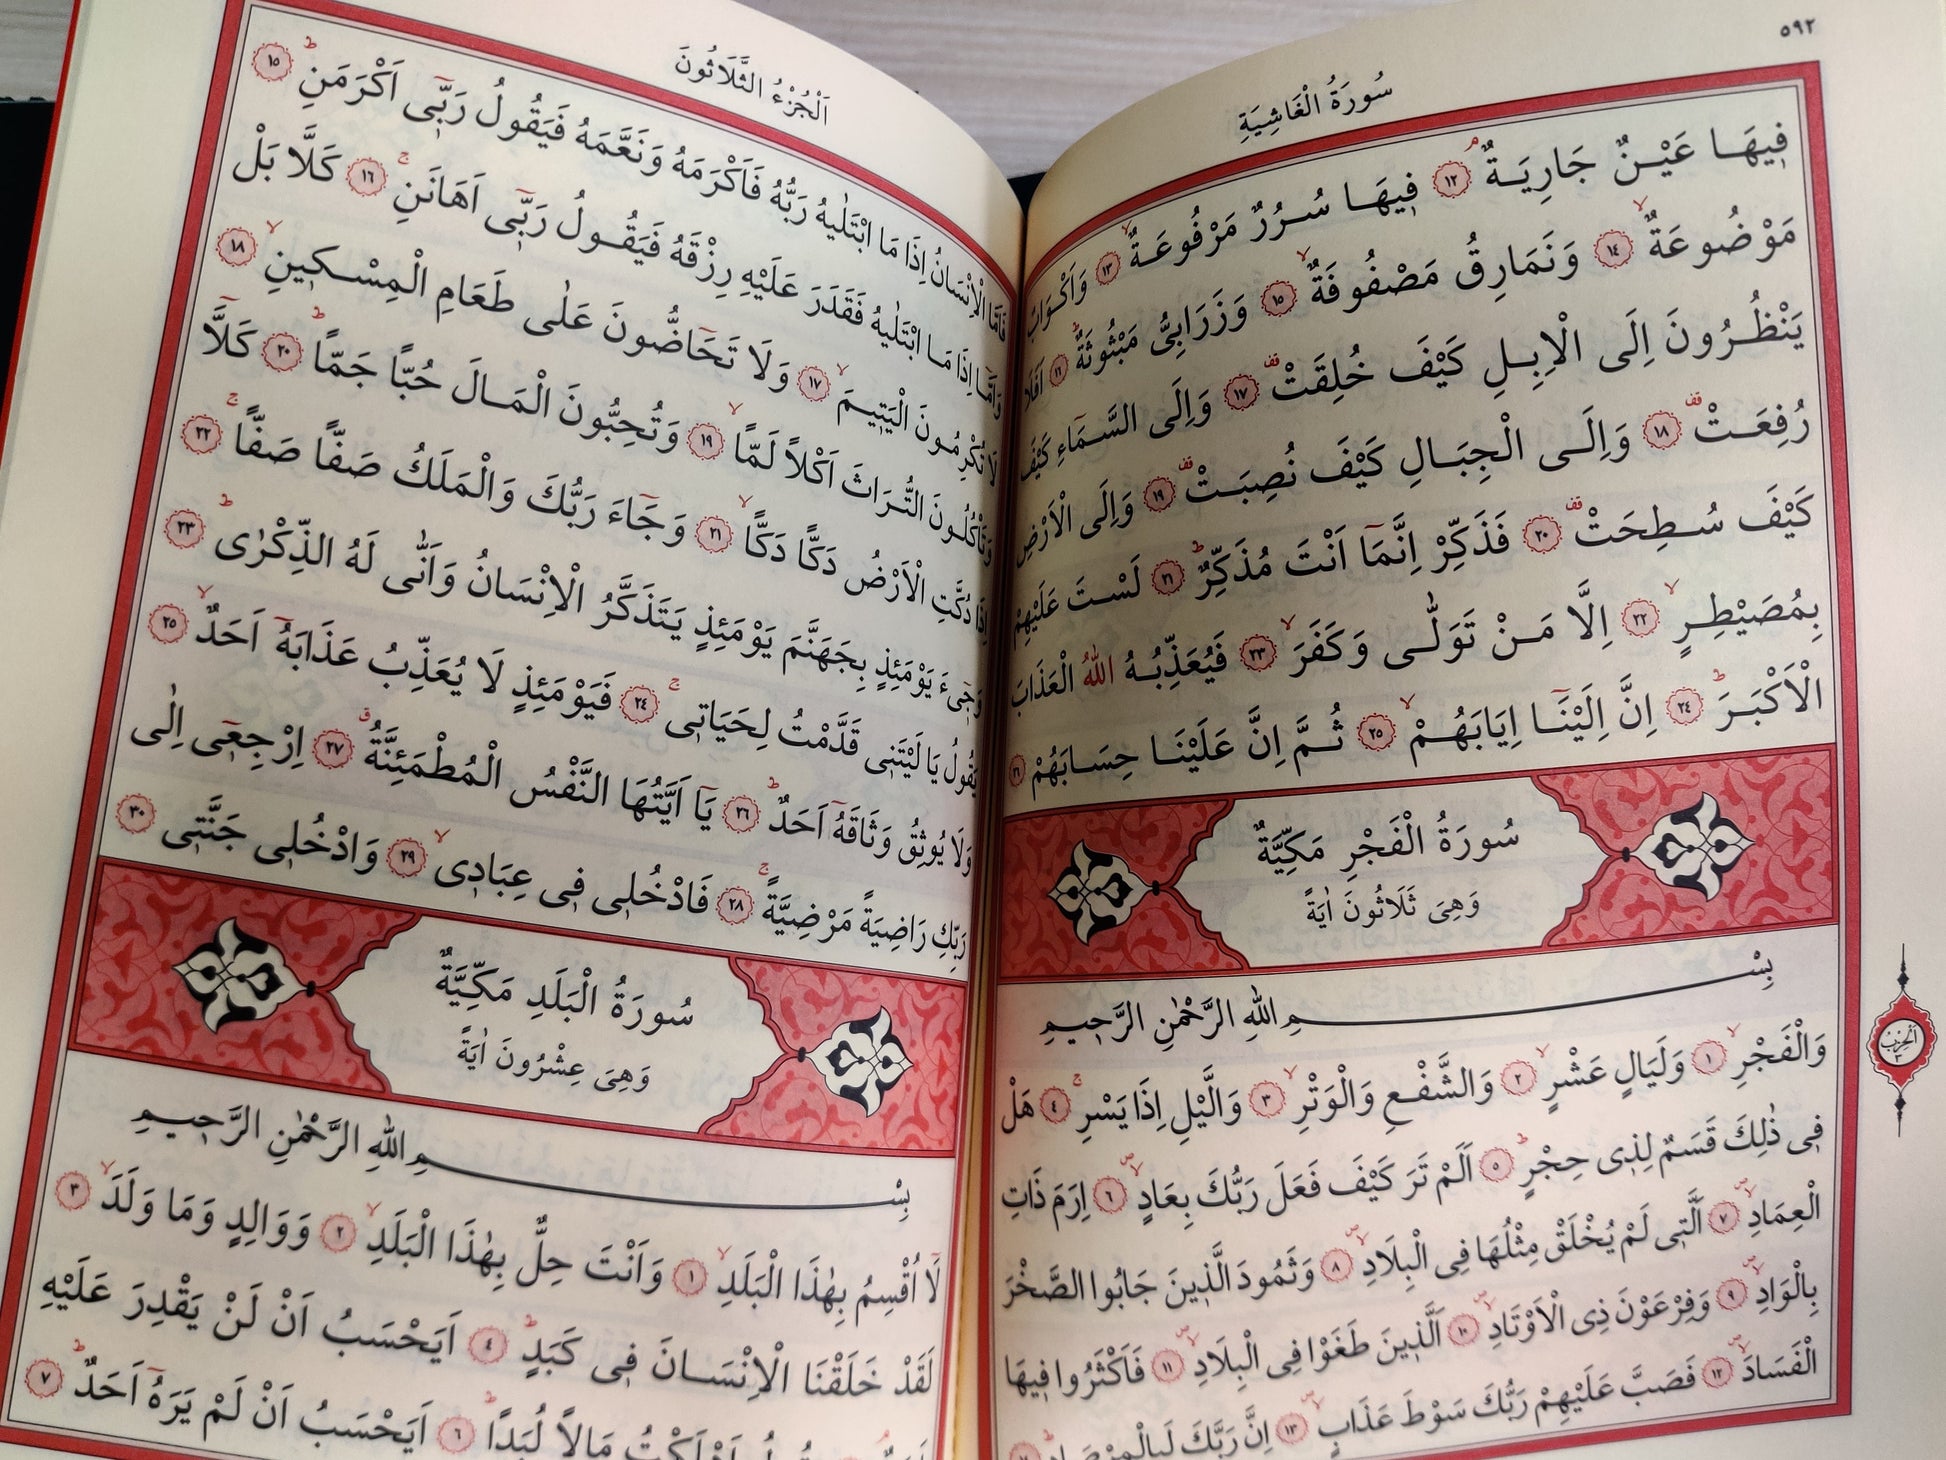 ٥٩٢
سُورَةُ الْغَاشِيَةِ
فِيهَا عَيْنٌ جَارِيَةٌ ۘ ١٢ فِيهَا سُرُرٌ مَرْفُوعَةٌ ۙ ١٣ وَاَكْوَابٌ
مَوْضُوعَةٌ ۙ ١٤ وَنَمَارِقُ مَصْفُوفَةٌ ۙ ١٥ وَزَرَابِيُّ مَبْثُوثَةٌ ط ١٦ اَفَلَا
يَنْظُرُونَ اِلَى الْاِبِلِ كَيْفَ خُلِقَتْ قف ١٧ وَاِلَى السَّمَٓاءِ كَيْفَ
رُفِعَتْ قف ١٨ وَاِلَى الْجِبَالِ كَيْفَ نُصِبَتْ قف ١٩ وَاِلَى الْاَرْضِ
كَيْفَ سُطِحَتْ قف ٢٠ فَذَكِّرْ اِنَّمَٓا اَنْتَ مُذَكِّرٌ ط ٢١ لَسْتَ عَلَيْهِمْ
بِمُصَيْطِرٍ ۙ ٢٢ اِلَّا مَنْ تَوَلّٰى وَكَفَرَ ۙ ٢٣ فَيُعَذِّبُهُ اللّٰهُ الْعَذَابَ
الْاَكْبَرَ ط ٢٤ اِنَّ اِلَيْنَٓا اِيَابَهُمْ ۙ ٢٥ ثُمَّ اِنَّ عَلَيْنَا حِسَابَهُمْ ٢٦
سُورَةُ الْفَجْرِ مَكِّيَّةٌ
وَهِيَ ثَلَاثُونَ اٰيَةً
بِسْمِ اللّٰهِ الرَّحْمٰنِ الرَّحِيمِ
وَالْفَجْرِ ۙ ١ وَلَيَالٍ عَشْرٍ ۙ ٢ وَالشَّفْعِ وَالْوَتْرِ ۙ ٣ وَالَّيْلِ اِذَا يَسْرِ ۚ ٤ هَلْ
فِي ذٰلِكَ قَسَمٌ لِذِي حِجْرٍ ط ٥ اَلَمْ تَرَ كَيْفَ فَعَلَ رَبُّكَ بِعَادٍ ۙۖ ٦ اِرَمَ ذَاتِ
الْعِمَادِ ۙۖ ٧ اَلَّتِي لَمْ يُخْلَقْ مِثْلُهَا فِي الْبِلَادِ ۙۖ ٨ وَثَمُودَ الَّذِينَ جَابُوا الصَّخْرَ
بِالْوَادِ ۙۖ ٩ وَفِرْعَوْنَ ذِي الْاَوْتَادِ ۙۖ ١٠ اَلَّذِينَ طَغَوْا فِي الْبِلَادِ ۙۖ ١١ فَاَكْثَرُوا فِيهَا
الْفَسَادَ ۙۖ ١٢ فَصَبَّ عَلَيْهِمْ رَبُّكَ سَوْطَ عَذَابٍ ۙۖ ١٣ اِنَّ رَبَّكَ لَبِالْمِرْصَادِ ط
اَلْحِزْبُ ٣
اَلْجُزْءُ الثَّلَاثُونَ
فَاَمَّا الْاِنْسَانُ اِذَا مَا ابْتَلٰيهُ رَبُّهُ فَاَكْرَمَهُ وَنَعَّمَهُ فَيَقُولُ رَبِّٓي اَكْرَمَنِ ط ١٥
وَاَمَّٓا اِذَا مَا ابْتَلٰيهُ فَقَدَرَ عَلَيْهِ رِزْقَهُ فَيَقُولُ رَبِّٓي اَهَانَنِ ۚ ١٦ كَلَّا بَلْ
لَا تُكْرِمُونَ الْيَتِيمَ ۙ ١٧ وَلَا تَحَٓاضُّونَ عَلٰى طَعَامِ الْمِسْكِينِ ۙ ١٨
وَتَأْكُلُونَ التُّرَاثَ اَكْلًا لَمًّا ۙ ١٩ وَتُحِبُّونَ الْمَالَ حُبًّا جَمًّا ط ٢٠ كَلَّٓا
اِذَا دُكَّتِ الْاَرْضُ دَكًّا دَكًّا ۙ ٢١ وَجَٓاءَ رَبُّكَ وَالْمَلَكُ صَفًّا صَفًّا ۚ ٢٢
وَجِٓيءَ يَوْمَئِذٍ بِجَهَنَّمَ يَوْمَئِذٍ يَتَذَكَّرُ الْاِنْسَانُ وَاَنّٰى لَهُ الذِّكْرٰى ط ٢٣
يَقُولُ يَا لَيْتَنِي قَدَّمْتُ لِحَيَاتِي ۚ ٢٤ فَيَوْمَئِذٍ لَا يُعَذِّبُ عَذَابَهُٓ اَحَدٌ ۙ ٢٥
وَلَا يُوثِقُ وَثَاقَهُٓ اَحَدٌ ط ٢٦ يَٓا اَيَّتُهَا النَّفْسُ الْمُطْمَئِنَّةُ ق ٢٧ اِرْجِعِٓي اِلٰى
رَبِّكِ رَاضِيَةً مَرْضِيَّةً ۚ ٢٨ فَادْخُلِي فِي عِبَادِي ۙ ٢٩ وَادْخُلِي جَنَّتِي ٣٠
سُورَةُ الْبَلَدِ مَكِّيَّةٌ
وَهِيَ عِشْرُونَ اٰيَةً
بِسْمِ اللّٰهِ الرَّحْمٰنِ الرَّحِيمِ
لَٓا اُقْسِمُ بِهٰذَا الْبَلَدِ ۙ ١ وَاَنْتَ حِلٌّ بِهٰذَا الْبَلَدِ ۙ ٢ وَوَالِدٍ وَمَا وَلَدَ ۙ ٣
لَقَدْ خَلَقْنَا الْاِنْسَانَ فِي كَبَدٍ ط ٤ اَيَحْسَبُ اَنْ لَنْ يَقْدِرَ عَلَيْهِ
اَهْلَكْتُ مَالًا لُبَدًا ط ٦ اَيَحْسَبُ اَنْ لَمْ يَرَهُٓ اَحَدٌ ط ٧